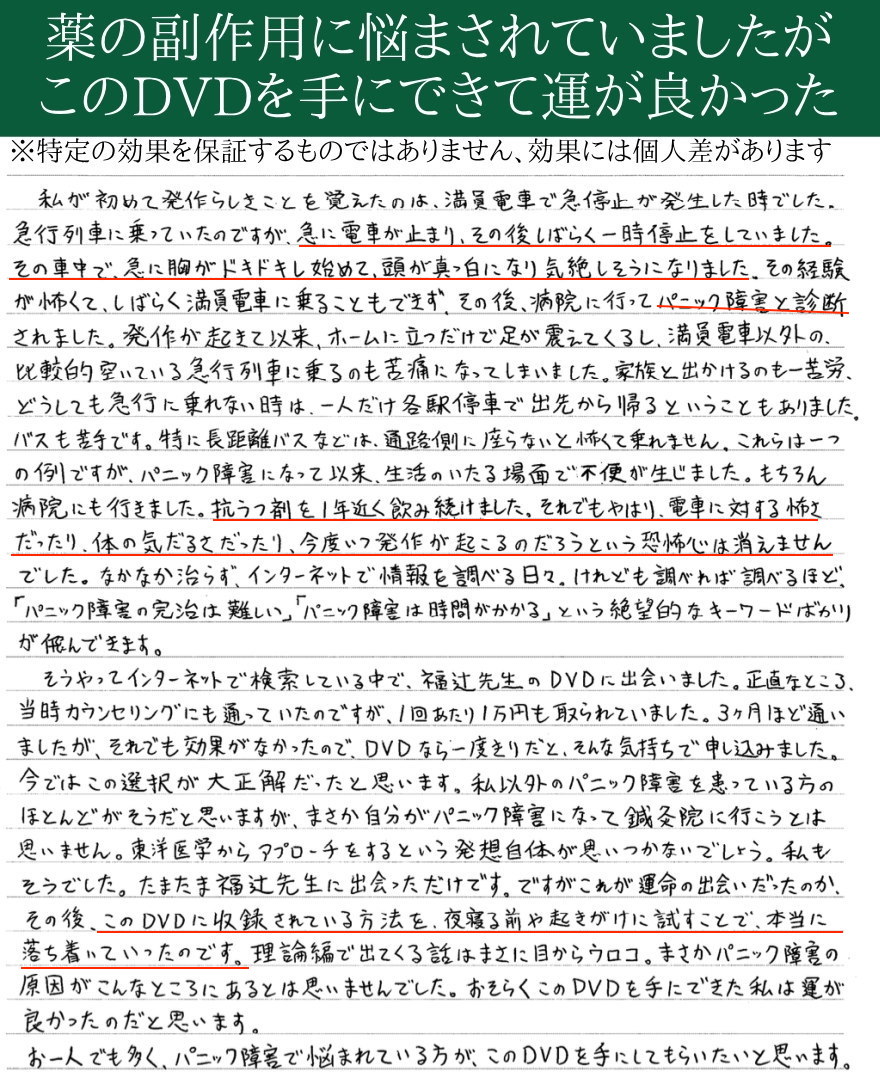 薬の副作用に悩まされていましたが
このDVDを手にできて運が良かった
※特定の効果を保証するものではありません、効果には個人差があります
私が初めて発作らしきことを覚えたのは、満員電車で急停止が発生した時でした。
急行列車に乗っていたのですが、急に電車が止まり、その後しばらく一時停止をしていました。
その車中で、急に胸がドキドキし始めて、頭が真っ白になり気絶しそうになりました。その経験
が怖くて、しばらく満員電車に乗ることもできず、その後、病院に行ってパニック障害と診断
されました。発作が起きて以来、ホームに立つだけで足が震えてくるし、満員電車以外の、
比較的空いている急行列車に乗るのも苦痛になってしまいました。家族と出かけるのも一苦労、
どうしても急行に乗れない時は、一人だけ各駅停車で出先から帰るということもありました。
バスも苦手です。特に長距離バスなどは、通路側に座らないと怖くて乗れません。これらは一つ
の例ですが、パニック障害になって以来、生活のいたる場面で不便が生じました。もちろん
病院にも行きました。抗うつ剤を1年近く飲み続けました。それでもやはり、電車に対する怖さ
だったり、体の気だるさだったり、今度いつ発作が起こるのだろうという恐怖心は消えません
でした。なかなか治らず、インターネットで情報を調べる日々。けれども調べれば調べるほど、
「パニック障害の完治は難しい」「パニック障害は時間がかかる」という絶望的なキーワードばかり
が飛んできます。
そうやってインターネットで検索している中で、福辻先生のDVDに出会いました。正直なところ、
当時カウンセリングにも通っていたのですが、1回あたり1万円も取られていました。3ヶ月ほど通い
ましたが、それでも効果がなかったので、DVDなら一度きりだと、そんな気持ちで申し込みました。
今ではこの選択が大正解だったと思います。私以外のパニック障害を患っている方の
ほとんどがそうだと思いますが、まさか自分がパニック障害になって鍼灸院に行こうとは
思いません。東洋医学からアプローチをするという発想自体が思いつかないでしょう。私も
そうでした。たまたま福辻先生に出会っただけです。ですがこれが運命の出会いだったのか、
その後、このDVDに収録されている方法を、夜寝る前や起きがけに試すことで、本当に
落ち着いていったのです。理論編で出てくる話はまさに目からウロコ。まさかパニック障害の
原因がこんなところにあるとは思いませんでした。おそらくこのDVDを手にできた私は運が
良かったのだと思います。
お一人でも多く、パニック障害で悩まれている方が、このDVDを手にしてもらいたいと思います。